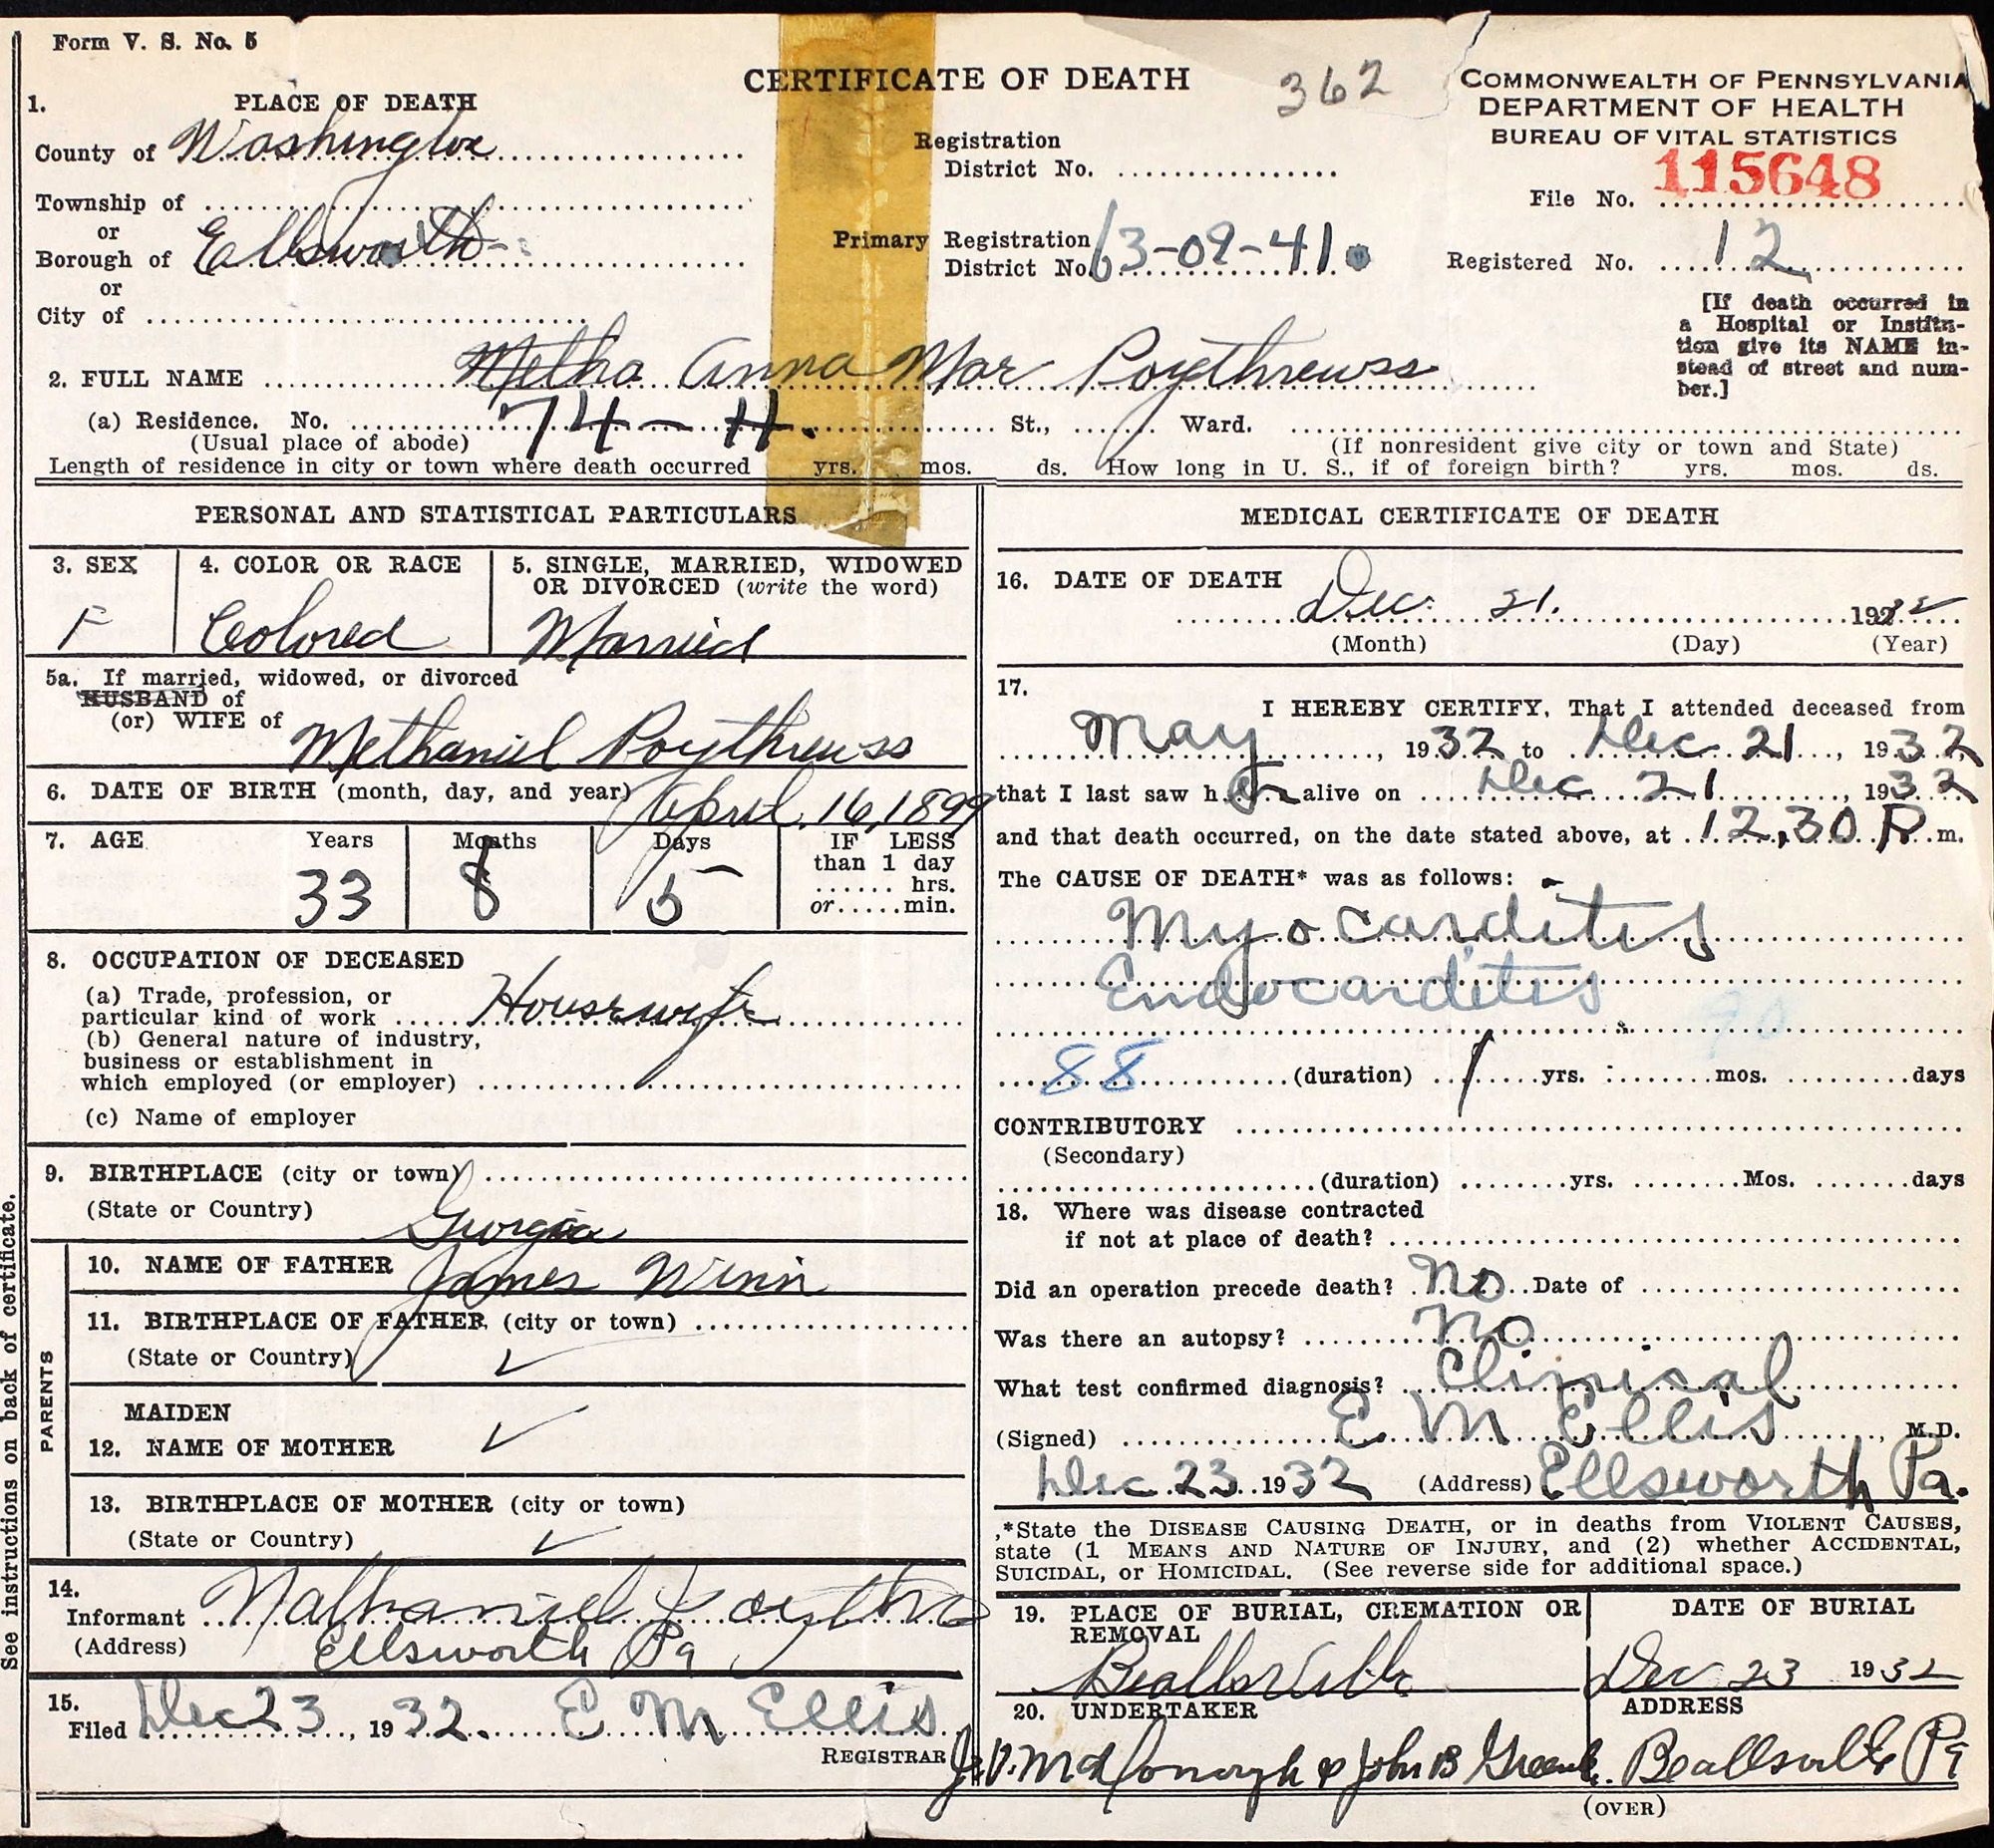 Form V. S. No. 5
CERTIFICATE OF DEATH
362
COMMONWEALTH OF PENNSYLVANIA
DEPARTMENT OF HEALTH
BUREAU OF VITAL STATISTICS
1. PLACE OF DEATH
County of Washington
Township of
or
Borough of Ellsworth
or
City of
Registration
District No.
Primary Registration
District No. 63-09-41.
File No. 115648
Registered No. 12
[If death occurred in
a Hospital or Institu-
tion give its NAME in-
stead of street and num-
ber.]
2. FULL NAME Metha Anna Mar Poythrewss
(a) Residence. No. 74 - H. St., Ward.
(Usual place of abode) (If nonresident give city or town and State)
Length of residence in city or town where death occurred yrs. mos. ds. How long in U. S., if of foreign birth? yrs. mos. ds.
PERSONAL AND STATISTICAL PARTICULARS
3. SEX
F
4. COLOR OR RACE
Colored
5. SINGLE, MARRIED, WIDOWED
OR DIVORCED (write the word)
Married
5a. If married, widowed, or divorced
HUSBAND of
(or) WIFE of Methaniel Poythrewss
6. DATE OF BIRTH (month, day, and year) April 16, 1899
7. AGE Years Months Days IF LESS
than 1 day
hrs.
or min.
33 8 5
8. OCCUPATION OF DECEASED
(a) Trade, profession, or
particular kind of work Housewife
(b) General nature of industry,
business or establishment in
which employed (or employer)
(c) Name of employer
9. BIRTHPLACE (city or town)
(State or Country) Georgia
PARENTS
10. NAME OF FATHER James Winn
11. BIRTHPLACE OF FATHER (city or town)
(State or Country) ✓
MAIDEN
12. NAME OF MOTHER ✓
13. BIRTHPLACE OF MOTHER (city or town)
(State or Country) ✓
14.
Informant Nathaniel
(Address) Ellsworth Pa
15.
Filed Dec 23, 1932. E M Ellis
REGISTRAR
See instructions on back of certificate.
MEDICAL CERTIFICATE OF DEATH
16. DATE OF DEATH Dec. 21. 1932
(Month) (Day) (Year)
17.
I HEREBY CERTIFY, That I attended deceased from
May, 1932 to Dec 21, 1932
that I last saw her alive on Dec 21, 1932
and that death occurred, on the date stated above, at 12,30 P.m.
The CAUSE OF DEATH* was as follows:
Myocarditis
Endocarditis
90
88 (duration) 1 yrs. mos. days
CONTRIBUTORY
(Secondary)
(duration) yrs. Mos. days
18. Where was disease contracted
if not at place of death?
Did an operation precede death? No Date of
Was there an autopsy? No
What test confirmed diagnosis? Clinical
(Signed) E. M Ellis, M.D.
Dec 23 1932 (Address) Ellsworth Pa.
*State the DISEASE CAUSING DEATH, or in deaths from VIOLENT CAUSES,
state (1 MEANS AND NATURE OF INJURY, and (2) whether ACCIDENTAL,
SUICIDAL, or HOMICIDAL. (See reverse side for additional space.)
19. PLACE OF BURIAL, CREMATION OR
REMOVAL
Beallsville
DATE OF BURIAL
Dec 23 1932
20. UNDERTAKER
J. V. McDonough & John B Greenlee
ADDRESS
Beallsville Pa
(OVER)